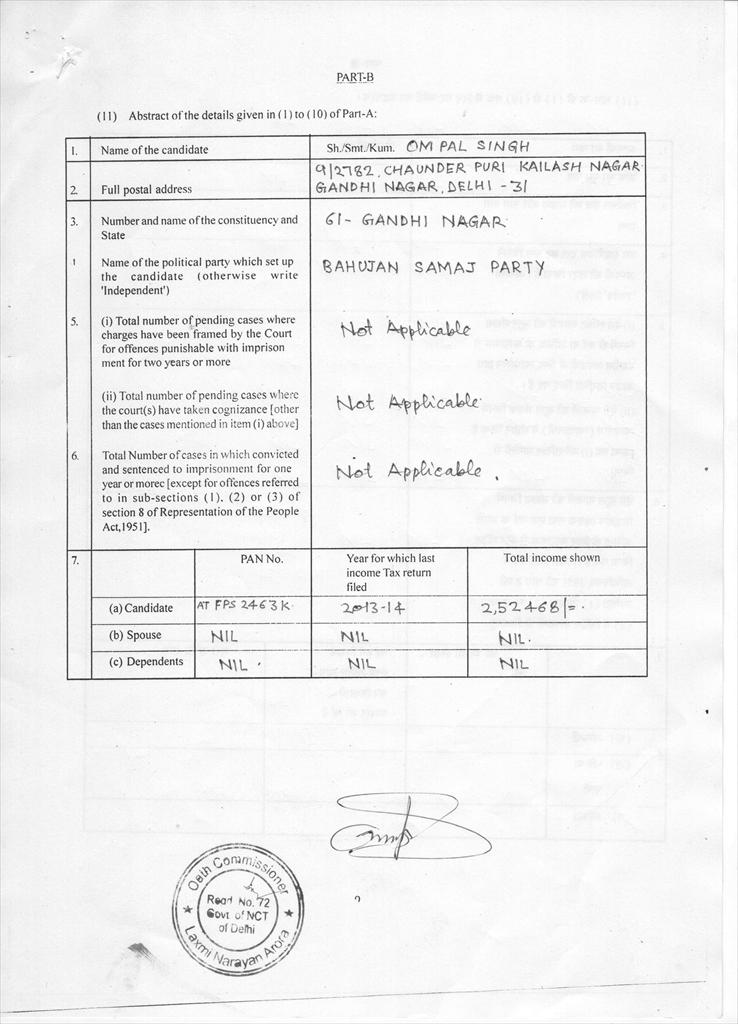 PART-B
(11) Abstract of the details given in (1) to (10) of Part-A:
1. Name of the candidate Sh./Smt./Kum. OM PAL SINGH
2. Full postal address 9/2782, CHAUNDER PURI KAILASH NAGAR
GANDHI NAGAR, DELHI - 31
3. Number and name of the constituency and
State
61- GANDHI NAGAR
Name of the political party which set up
the candidate (otherwise write
'Independent')
BAHUJAN SAMAJ PARTY
5. (i) Total number of pending cases where
charges have been framed by the Court
for offences punishable with imprison
ment for two years or more
Not Applicable
(ii) Total number of pending cases where
the court(s) have taken cognizance [other
than the cases mentioned in item (i) above]
Not Applicable
6. Total Number of cases in which convicted
and sentenced to imprisonment for one
year or morec [except for offences referred
to in sub-sections (1). (2) or (3) of
section 8 of Representation of the People
Act,1951].
Not Applicable.
7. PAN No. Year for which last
income Tax return
filed
Total income shown
(a) Candidate ATFPS2463K 2013-14 2,52468/=.
(b) Spouse NIL NIL NIL.
(c) Dependents NIL. NIL NIL
Oath Commissioner
Read No. 72
Govt. of NCT
of Delhi
Laxmi Narayan Arora